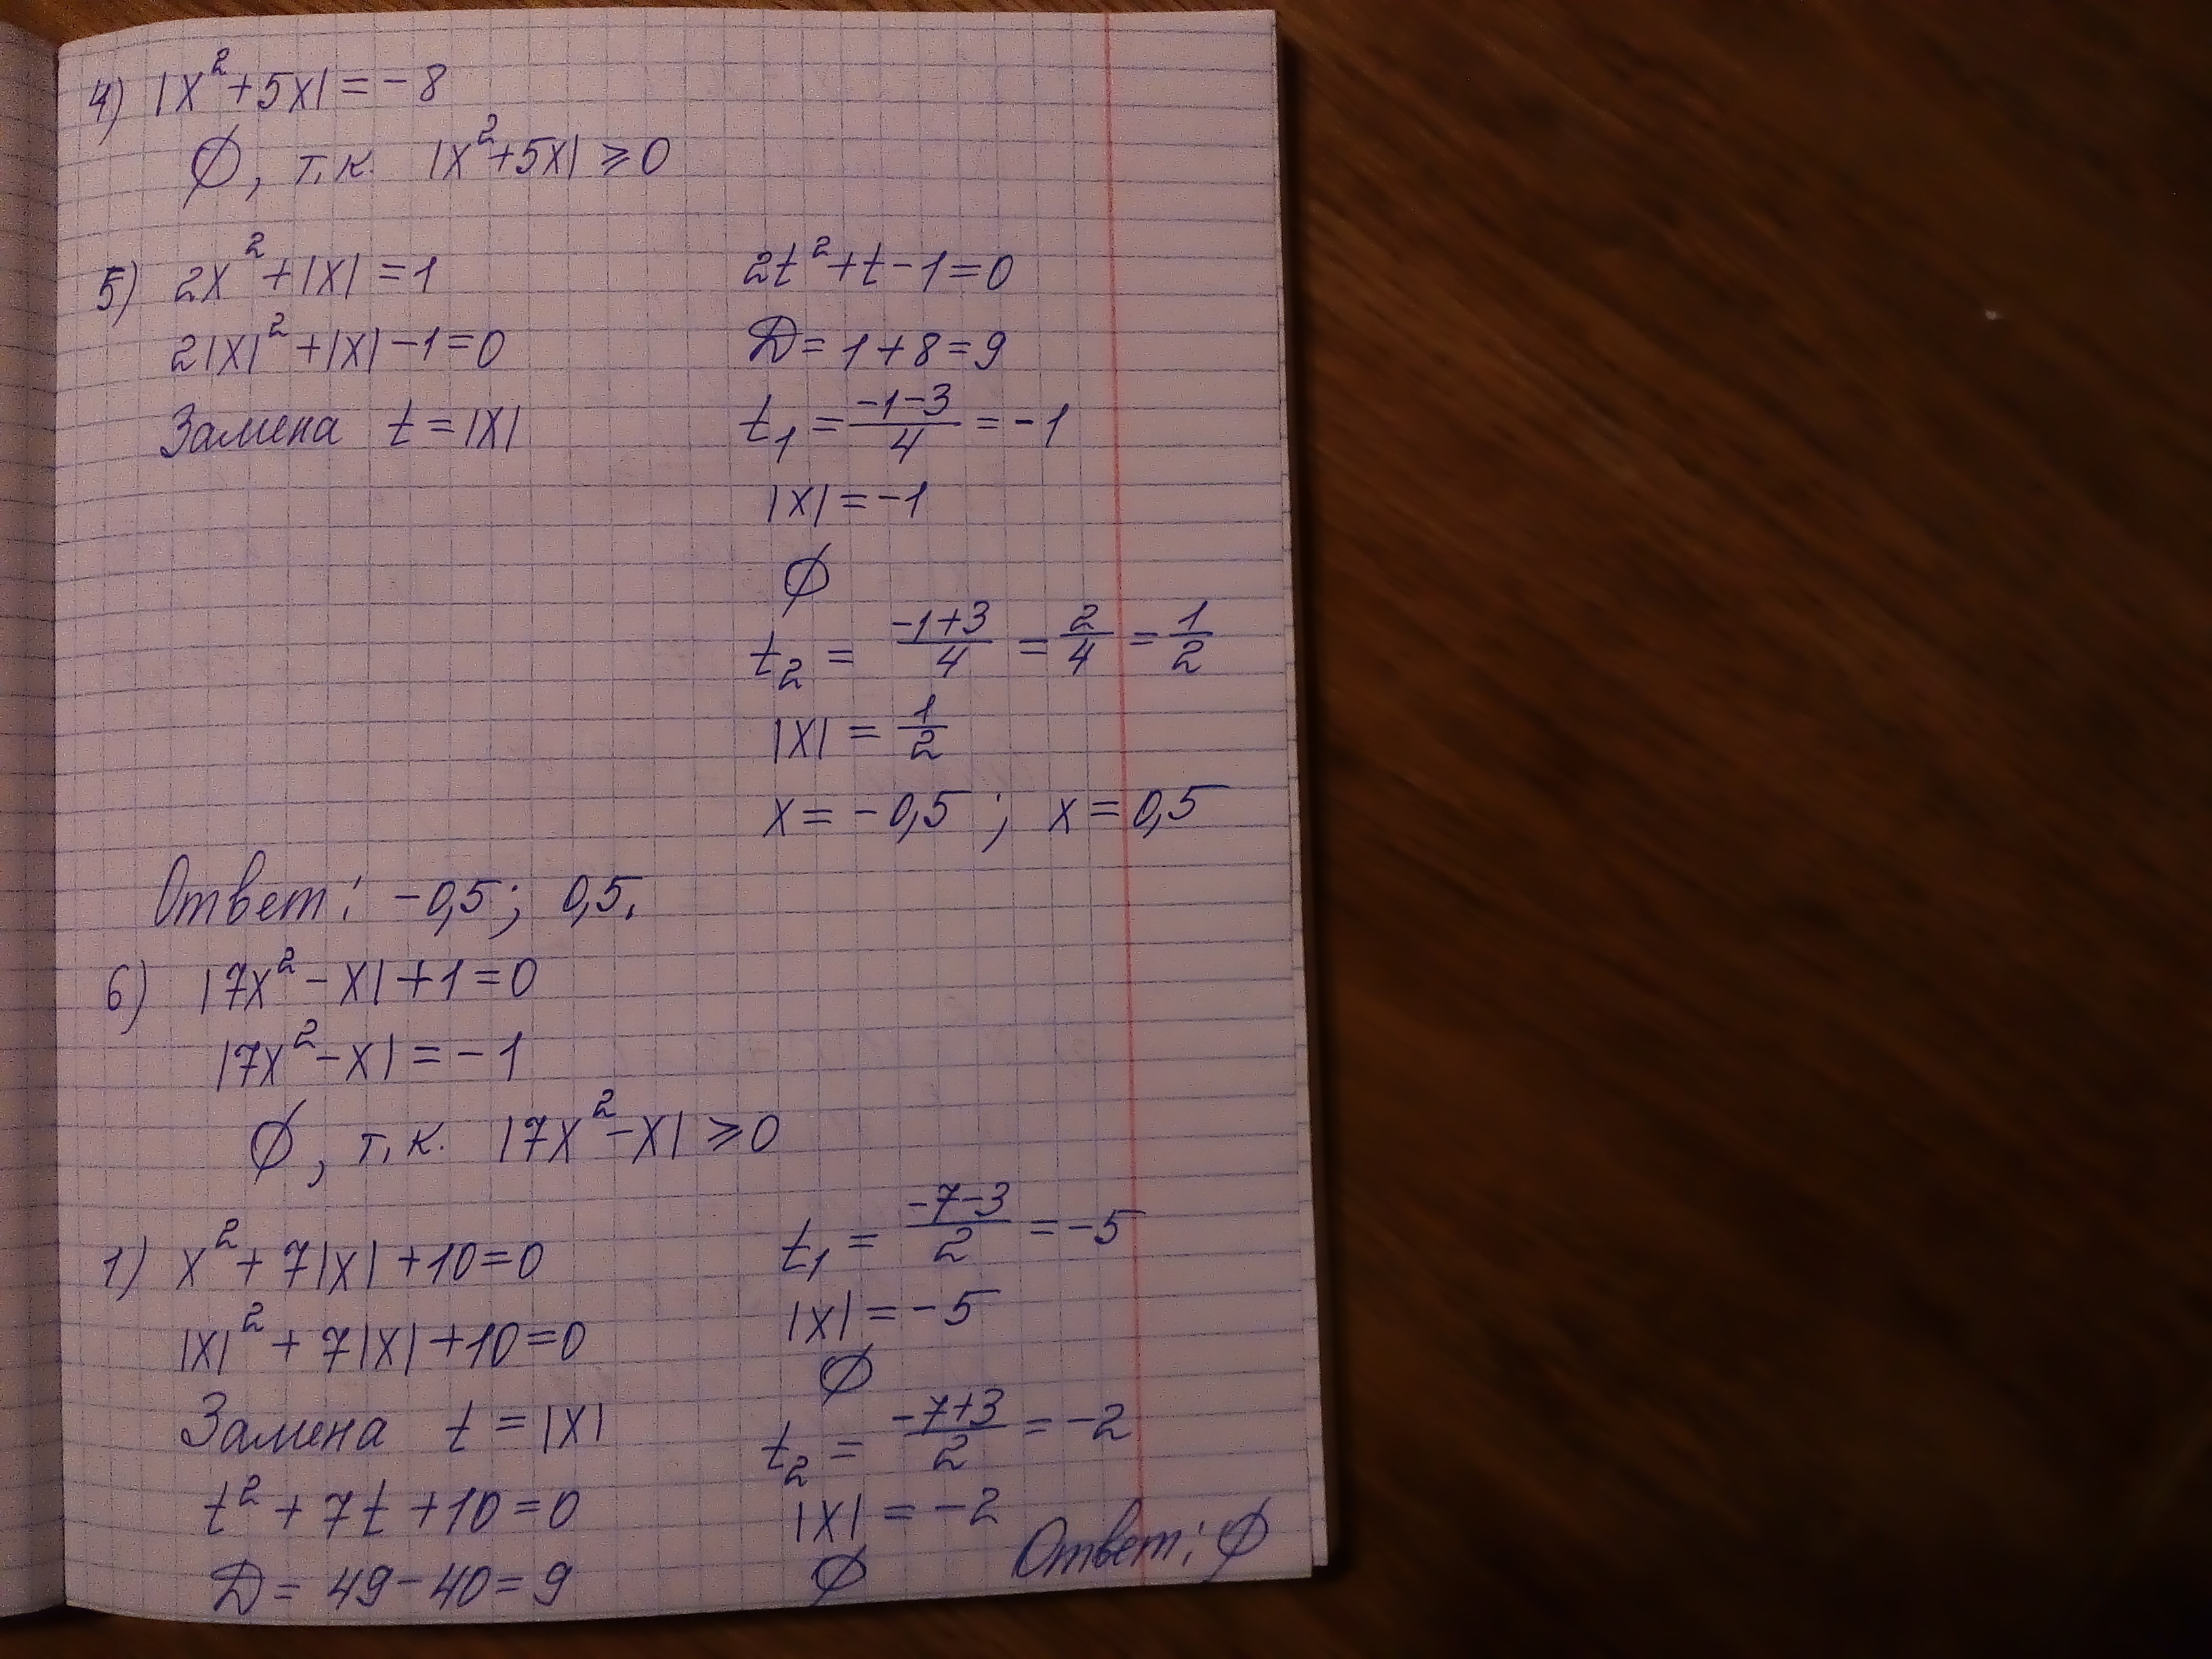 4) |x²+5x|=-8
∅, т.к. |x²+5x| ⩾0
5) 2x²+|x|=1
2|x|²+|x|-1=0
Замена t=|x|
2t²+t-1=0
Д=1+8=9
t₁=(-1-3)/4=-1
|x|=-1
∅
t₂=(-1+3)/4=2/4=1/2
|x|=1/2
x=-0,5; x=0,5
Ответ: -0,5; 0,5.
6) |7x²-x|+1=0
|7x²-x|=-1
∅, т.к. |7x²-x| ⩾0
1) x²+7|x|+10=0
|x|²+7|x|+10=0
Замена t=|x|
t²+7t+10=0
Д=49-40=9
t₁=(-7-3)/2=-5
|x|=-5
∅
t₂=(-7+3)/2=-2
|x|=-2
∅
Ответ: ∅